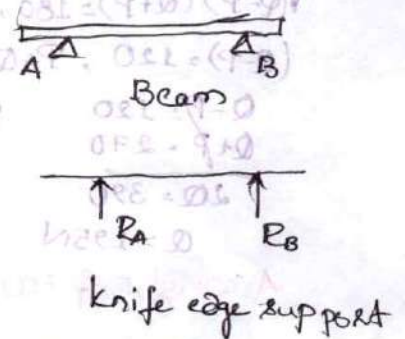 A B
Beam
RA RB
knife edge support